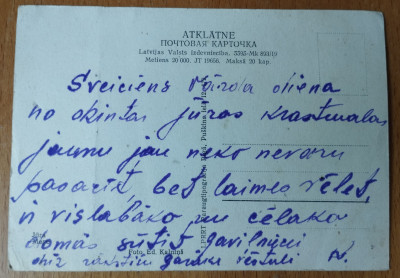 ATKLĀTNE
ПОЧТОВАЯ КАРТОЧКА
Latvijas Valsts izdevniecība. 5292-Mk 893/19
Metiens 30 000. JT 19656. Maksā 20 kap.
Sveiciens Vārda diena
no dzintar jūras krastmalas
jaunu jau neko nevaru
pasacīt, bet laimes vēlet,
un vislabāko un
domās sūtit
garāku vēstuli
Foto Ed. Kalniņa